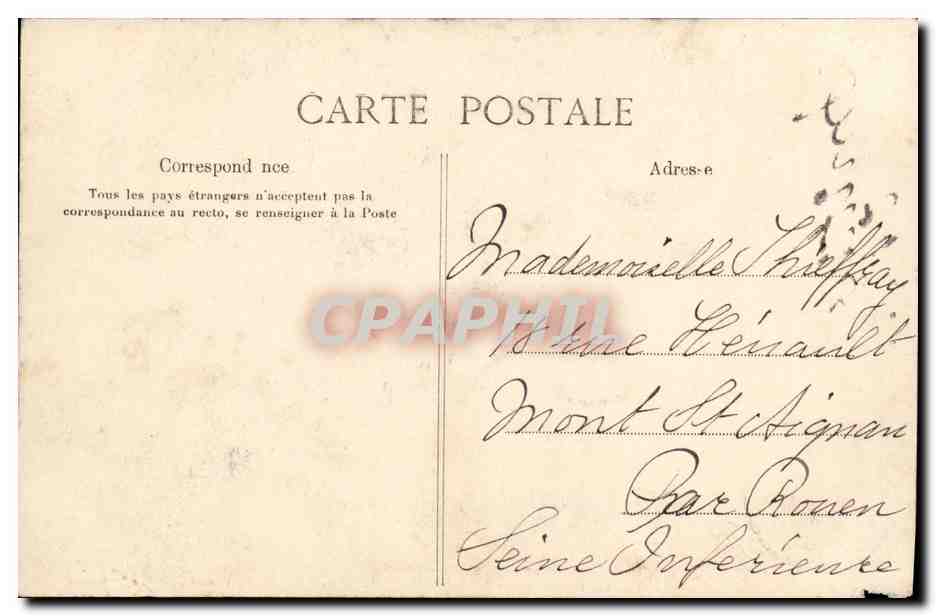 CARTE POSTALE
Correspond nce
Tous les pays étrangers n'acceptent pas la
correspondance au recto, se renseigner à la Poste
Adres-e
Mademoiselle Thieffray
18 rue Hénault
Mont St Aignan
Par Rouen
Seine Inférieure
CPAPHIL